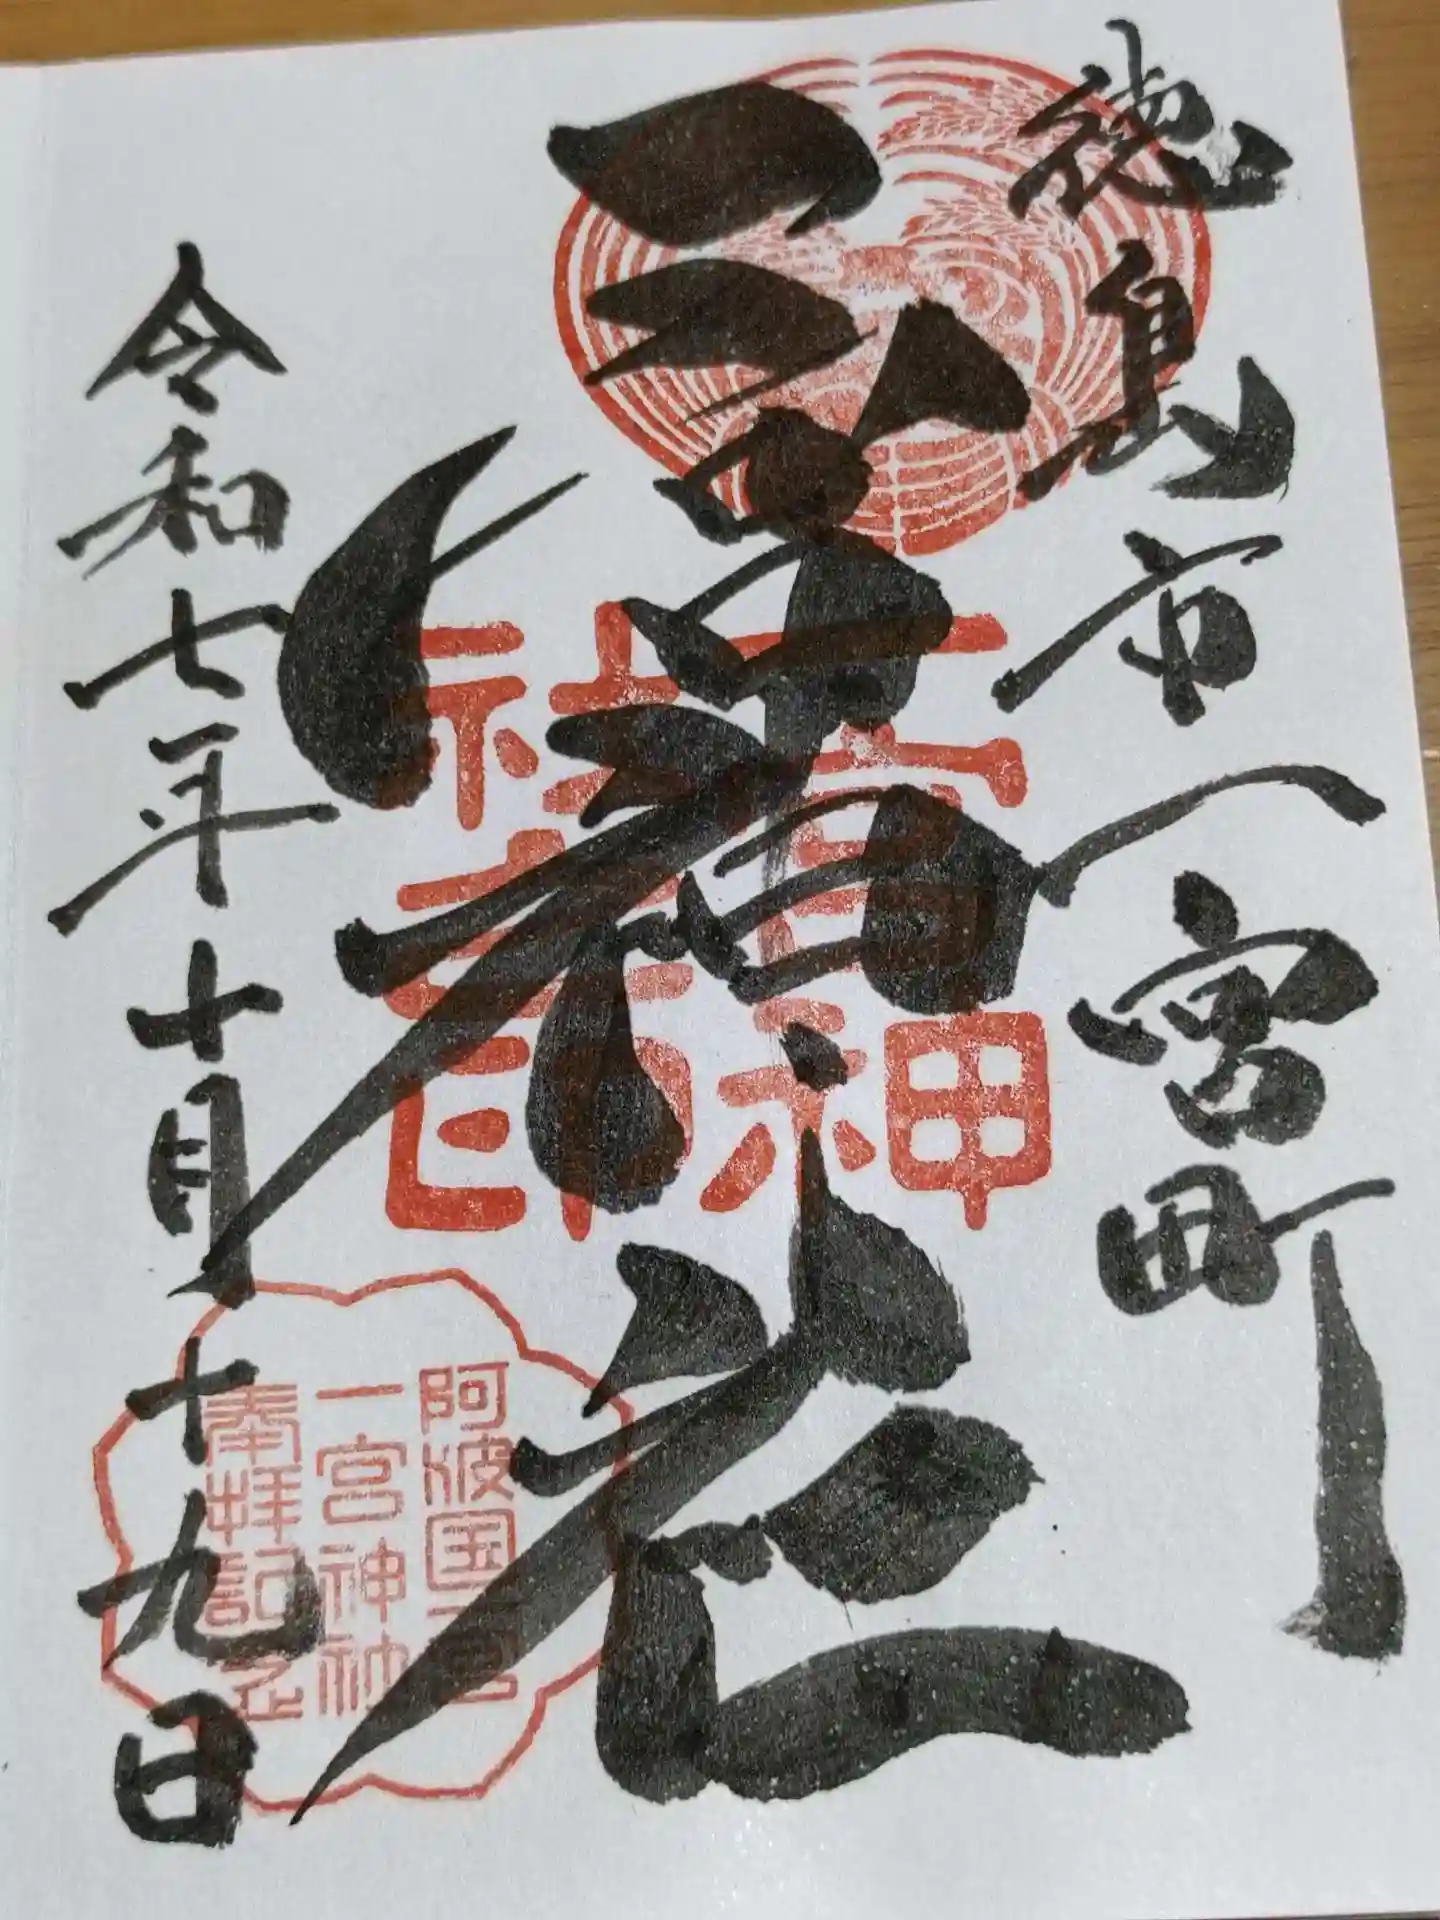 徳島市一宮町
一宮神社
令和七年十月十九日
一宮神
社寺印
阿波国一宮
一宮神社
奉拝記之